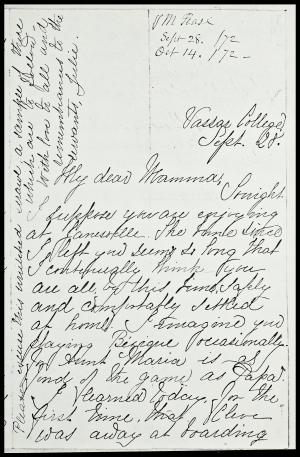 J. M. Pease
Sept 28. /72
Oct 14. /72 -
Vassar College,
Sept. 28.
My dear Mamma,
Tonight
I suppose you are enjoying
at Janesville. The time since
I left you seems so long that
I continually think you
are all, by this time, safely
and comfortably settled
at home. I imagine you
playing Bezeque occasionally
for Aunt Maria is as
fond of the game as Papa.
I learned today, for the
first time, that Cleve
was away at boarding
Please excuse this wretched
a sample of those
which are
With love to all and
remembrances to the
servants, Julie.